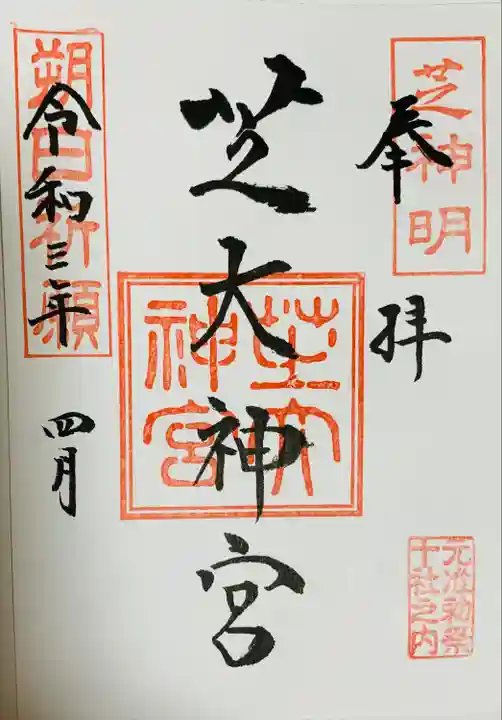 芝神明
奉拝
元准勅祭
十社之内
芝大神宮
芝大
神宮
朔日祈願
令和三年
四月